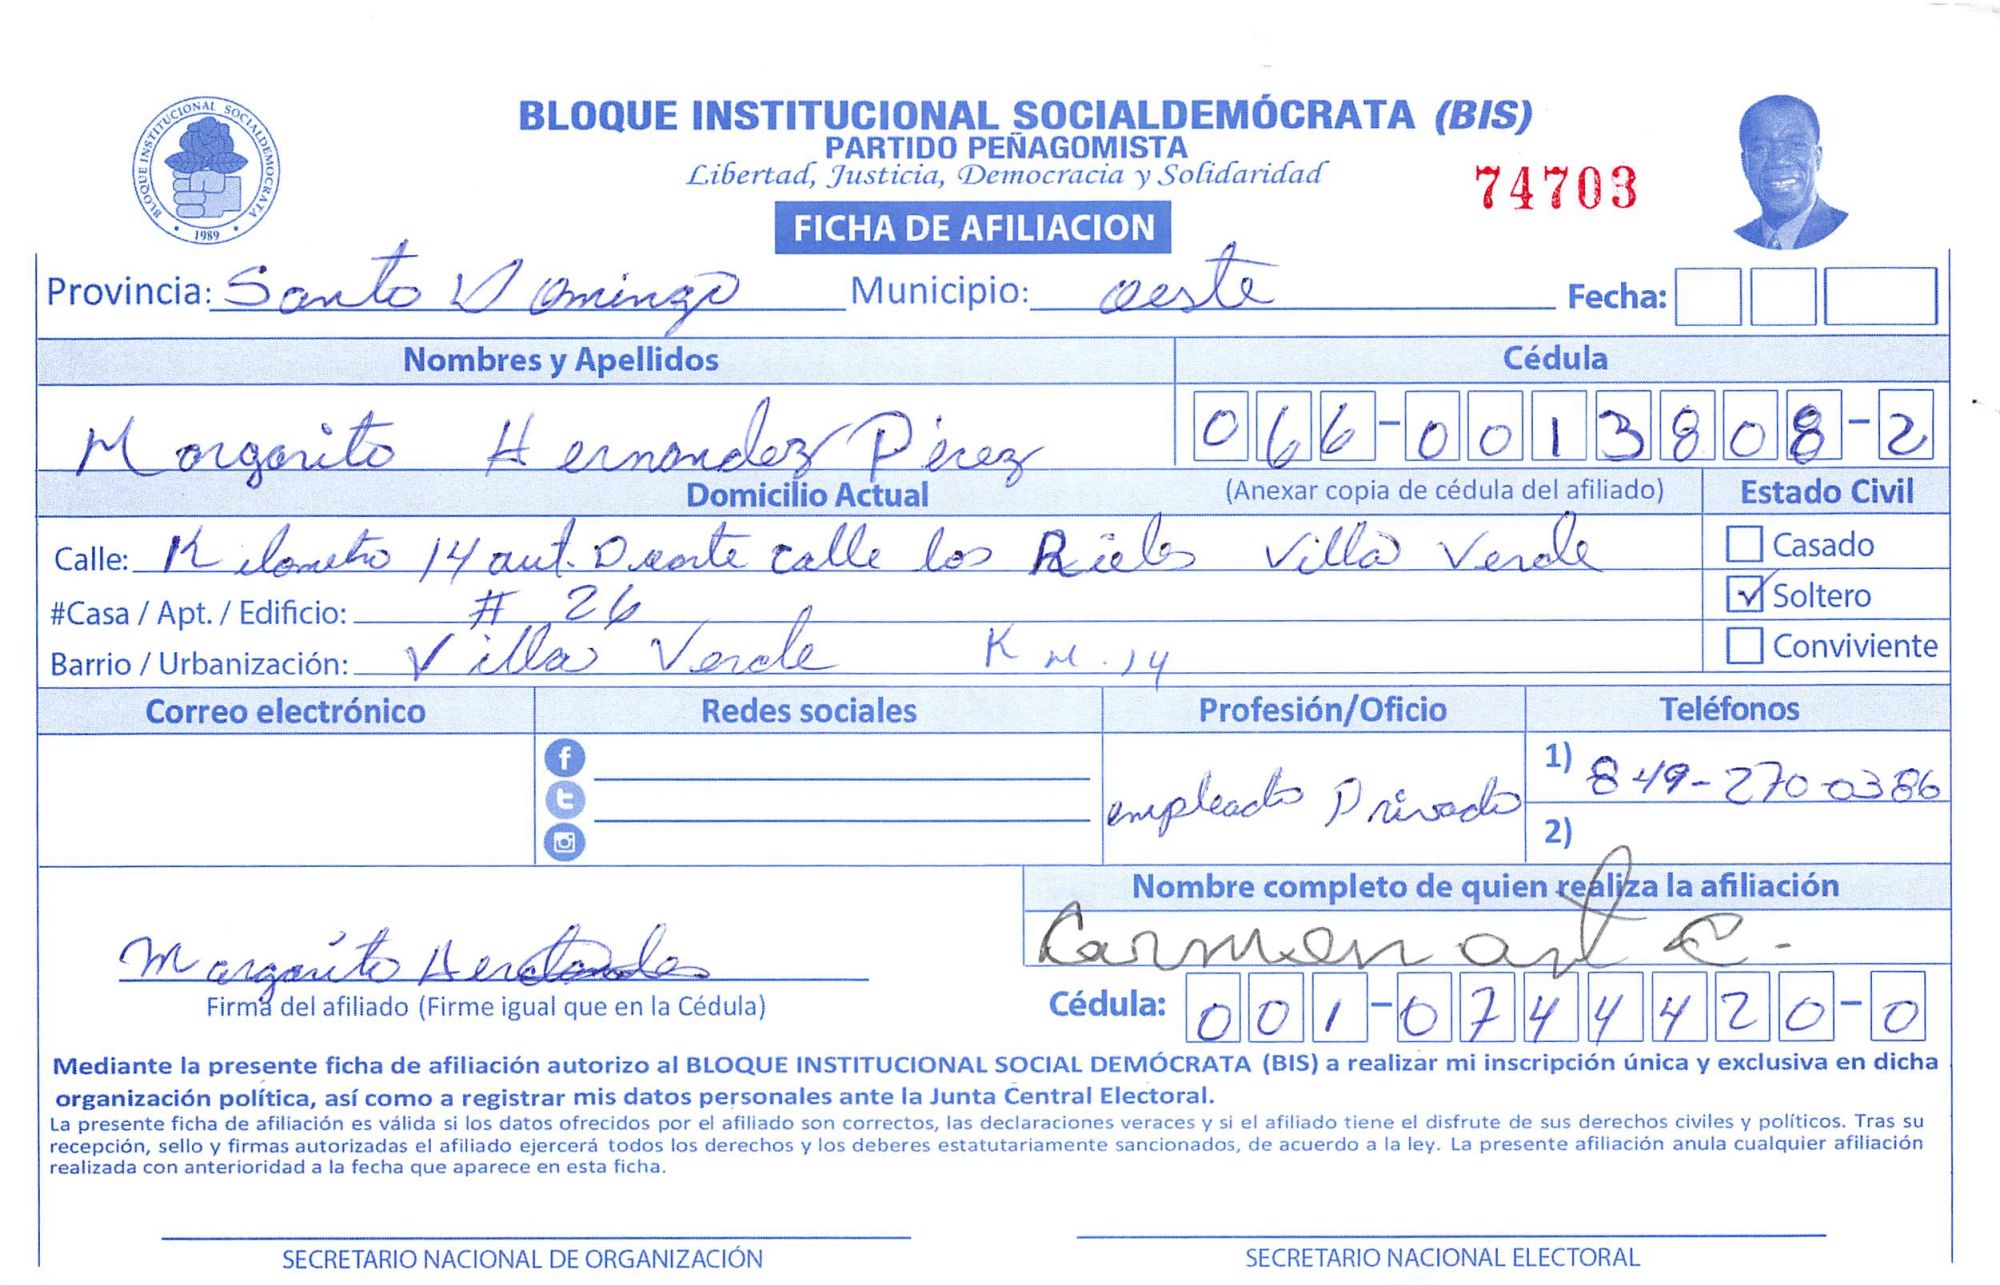 BLOQUE INSTITUCIONAL SOCIALDEMOCRATA
1989
BLOQUE INSTITUCIONAL SOCIALDEMÓCRATA (BIS)
PARTIDO PEÑAGOMISTA
Libertad, Justicia, Democracia y Solidaridad
74703
FICHA DE AFILIACION
Provincia: Santo Domingo Municipio: oeste Fecha:
Nombres y Apellidos Cédula
Margarito Hernandez Pérez 066-0013808-2
Domicilio Actual (Anexar copia de cédula del afiliado) Estado Civil
Calle: Kilometro 14 aut. Duarte calle los Rieles Villa Verde Casado
#Casa / Apt. / Edificio: # 26 Soltero
Barrio / Urbanización: Villa Verde KM. 14 Conviviente
Correo electrónico Redes sociales Profesión/Oficio Teléfonos
empleado Privado 1) 849-270-0386
2)
Nombre completo de quien realiza la afiliación
Margarito Carmen C.
Firma del afiliado (Firme igual que en la Cédula) Cédula: 001-0744420-0
Mediante la presente ficha de afiliación autorizo al BLOQUE INSTITUCIONAL SOCIAL DEMÓCRATA (BIS) a realizar mi inscripción única y exclusiva en dicha
organización política, así como a registrar mis datos personales ante la Junta Central Electoral.
La presente ficha de afiliación es válida si los datos ofrecidos por el afiliado son correctos, las declaraciones veraces y si el afiliado tiene el disfrute de sus derechos civiles y políticos. Tras su
recepción, sello y firmas autorizadas el afiliado ejercerá todos los derechos y los deberes estatutariamente sancionados, de acuerdo a la ley. La presente afiliación anula cualquier afiliación
realizada con anterioridad a la fecha que aparece en esta ficha.
SECRETARIO NACIONAL DE ORGANIZACIÓN SECRETARIO NACIONAL ELECTORAL